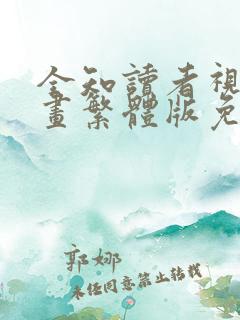 全知讀者視
畫繁體版免
郭娜
未经同意禁止转载